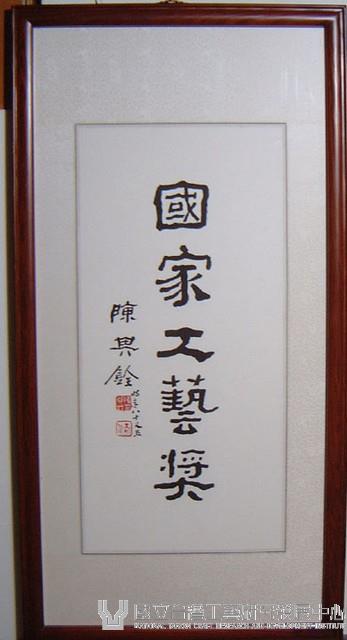 國家工藝獎
陳興銓
時年八十又五
國立台灣工藝研究發展中心
NATIONAL TAIWAN CRAFT RESEARCH AND DEVELOPMENT INSTITUTE